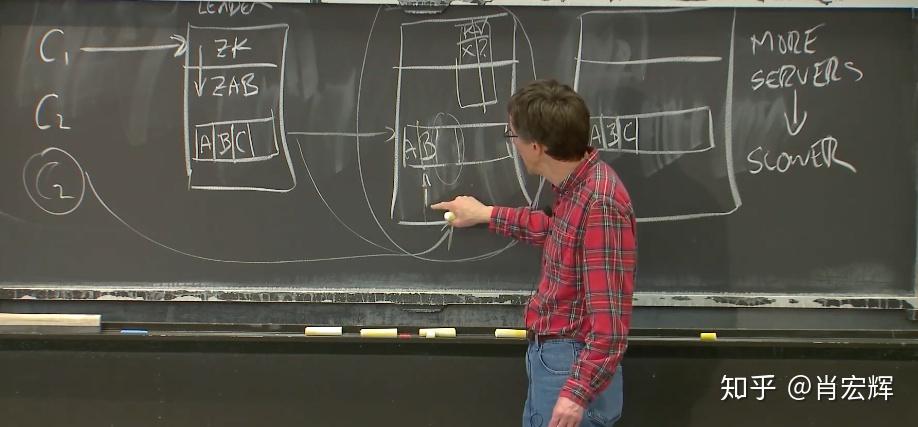 LEADER
C1
ZK
ZAB
A B C
C2
C2
KV
X 2
A B
A B C
MORE
SERVERS
SLOWER
知乎 @肖宏辉